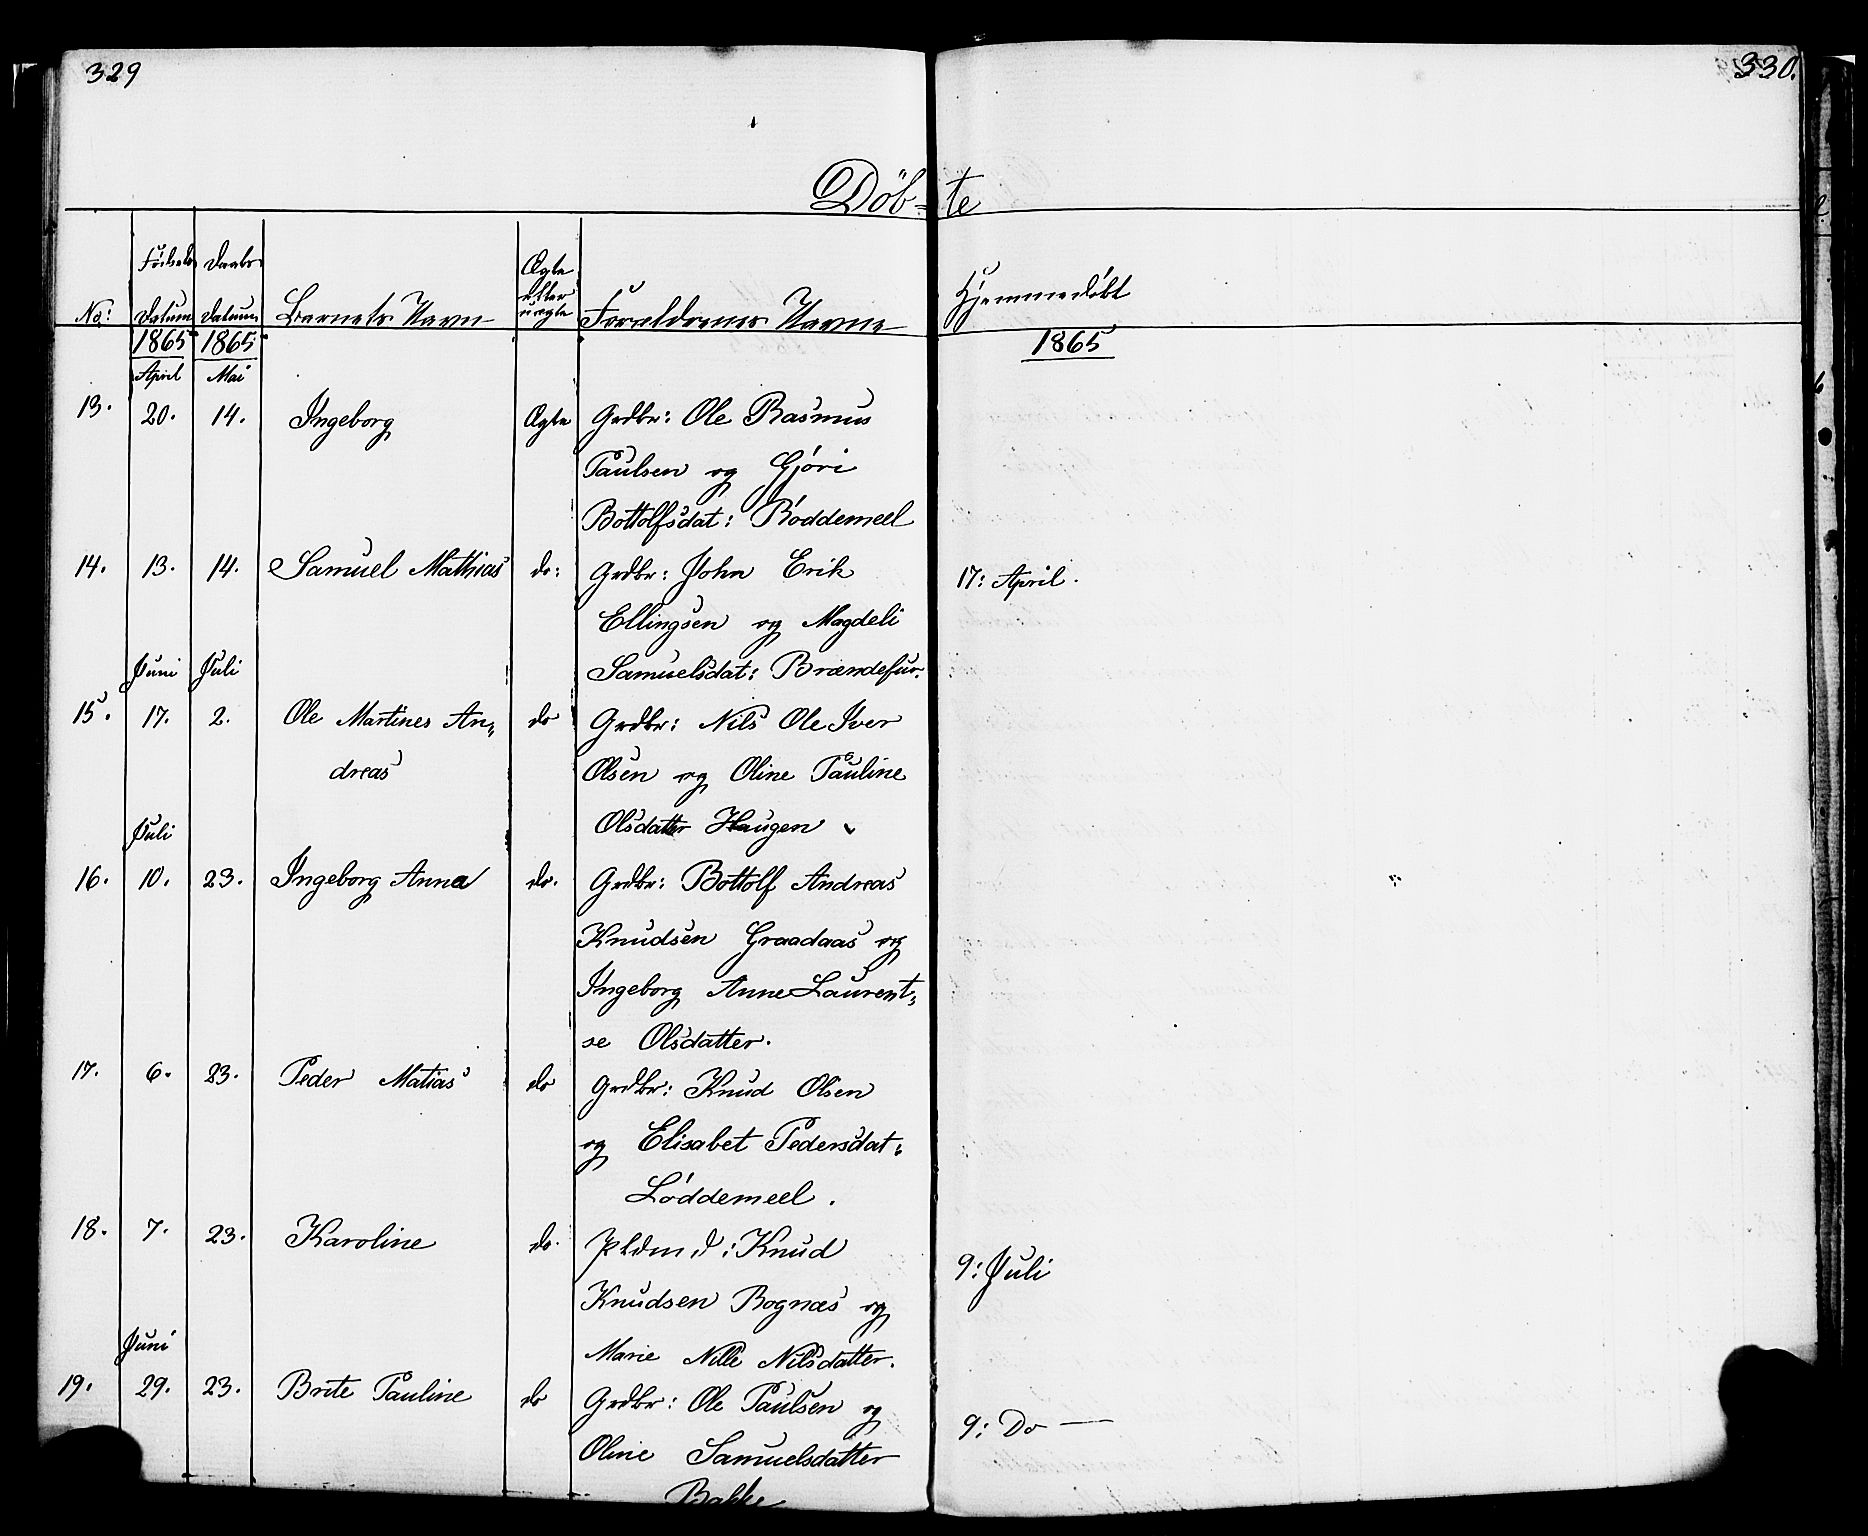 329
330.
Döb-te
No:
Födsels Datum
Daabs Datum
Barnets Navn
Ægte eller uægte
Foreldrenes Navne
Hjemmedöbt
1865 1865 1865
April Mai
13. 20. 14. Ingeborg Ægte Grdbr: Ole Rasmus
Paulsen og Gjöri
Bottolfsdat: Böddemeel
14. 13. 14. Samuel Mathias do: Grdbr: John Erik 17: April.
Ellingsen og Magdeli
Juni Juli Samuelsdat: Brændefur.
15. 17. 2. Ole Martines An- do Grdbr: Nils Ole Iver
dreas Olsen og Oline Pauline
Juli Olsdatter Haugen
16. 10. 23. Ingeborg Anna do. Grdbr: Bottolf Andreas
Knudsen Graadaas og
Ingeborg Anne Laurent-
se Olsdatter.
17. 6. 23. Peder Matias do Grdbr: Knud Olsen
og Elisabet Pedersdat:
Löddemeel.
18. 7. 23. Karoline do. Pldmd: Knud 9: Juli
Knudsen Bognæs og
Juni Marie Nille Nilsdatter.
19. 29. 23. Brite Pauline do Grdbr: Ole Paulsen og 9: Do —
Oline Samuelsdatter
Bakke